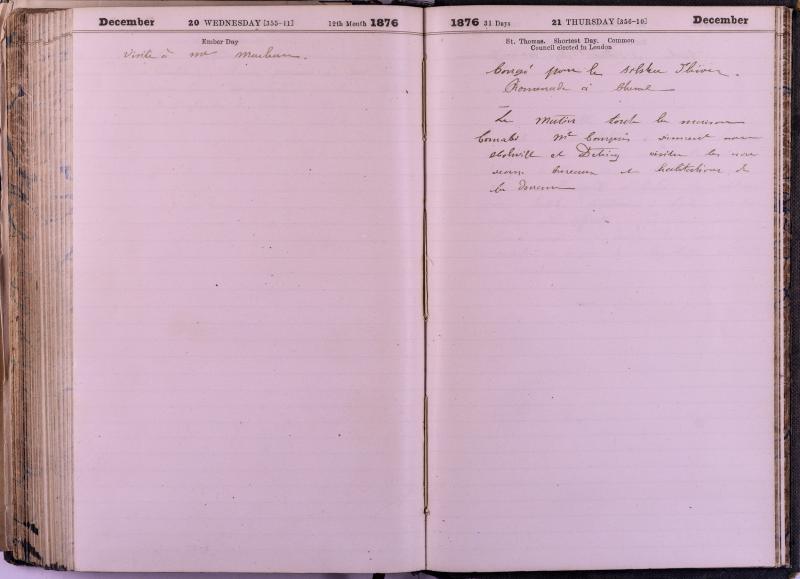 December 20 WEDNESDAY [355-11] 12th Month 1876
Ember Day
Visite à mr
1876 31 Days 21 THURSDAY [356-10] December
St. Thomas. Shortest Day. Common
Council elected in London
Congé pour le solstice d'hiver.
Promenade à cheval
Le matin toute la maison
et Detring visiter les nou
veaux bureaux et habitations de
la douane